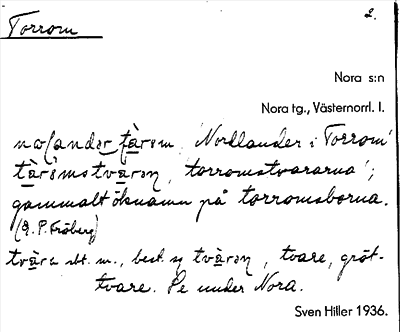 Torrom
2.
Nora s:n
Nora tg., Västernorrl. l.
nołander tàrøm, 'Nordlander i Torrom'
tàrömstvaron, 'torromstvararna',
gammalt öknamn på torromsborna.
(G. P. Fröberg)
tvära sbt. m., best. sg tväron, tvare, gröt-
tvare. Se under Nora.
Sven Hiller 1936.